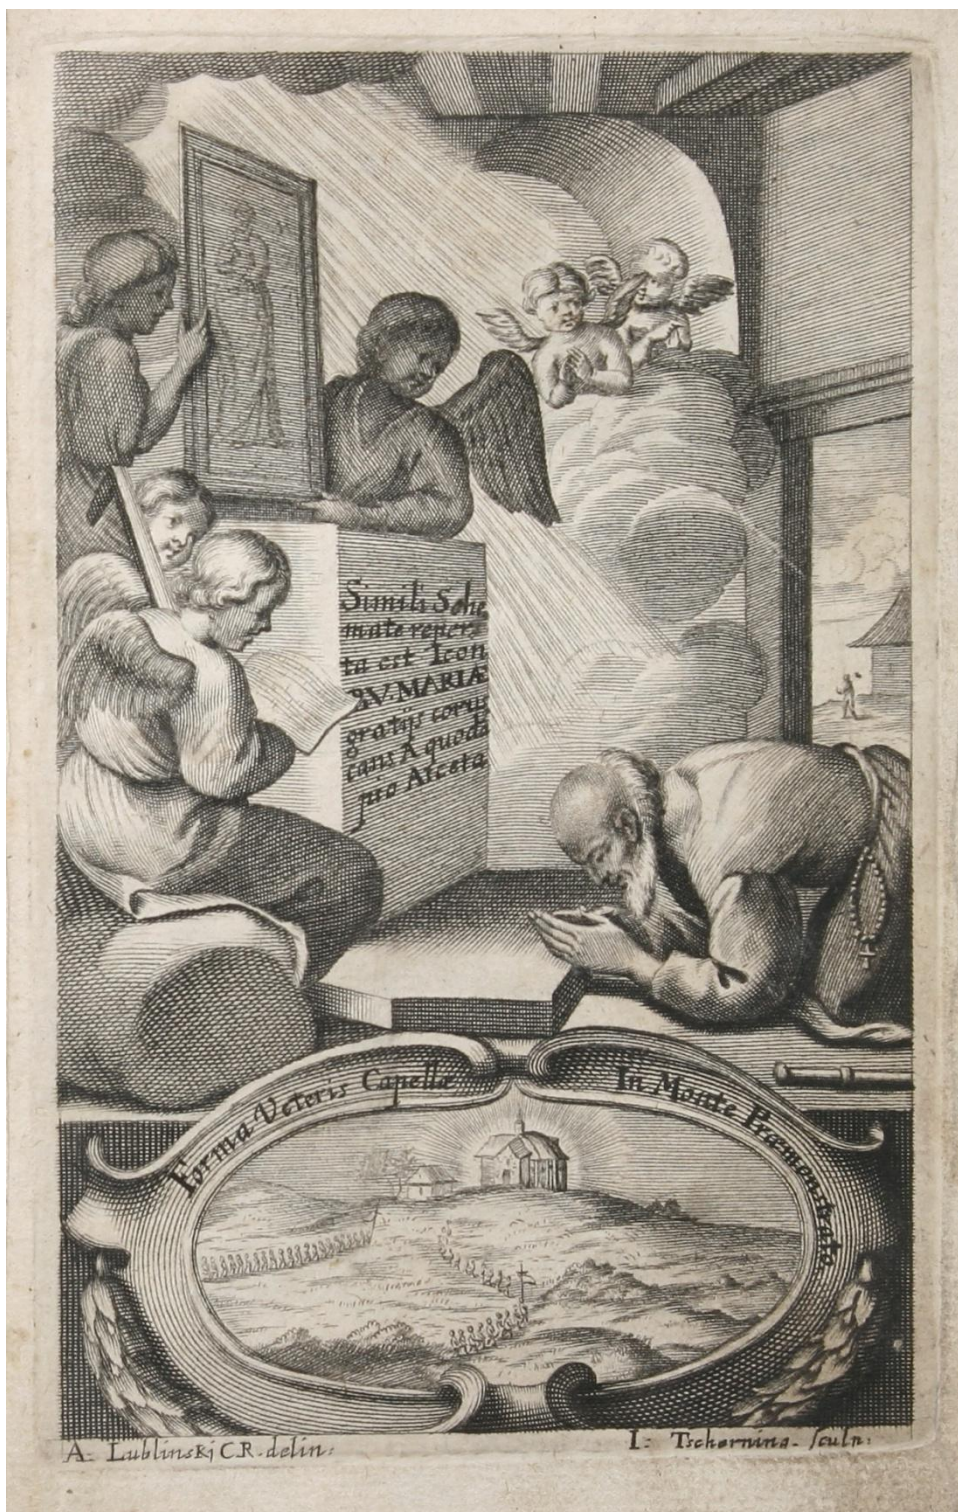 Simili Sche
mate reper-
ta est Icon
B.V. MARIÆ
gratijs corus
cans A quodā
pio Asceta
Forma Veteris Capellæ In Monte Præmonstrato
A: Lublinskj C.R. delin:
I: Tscherning. sculp: